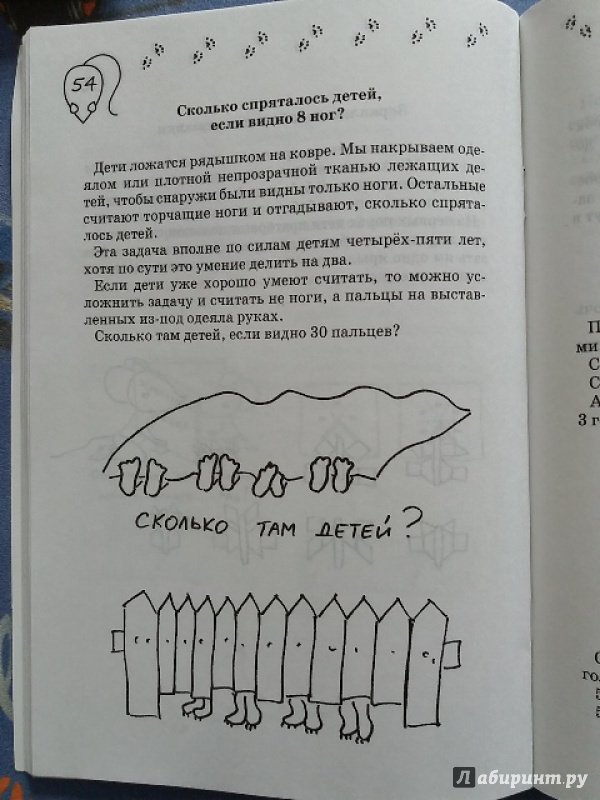 54
Сколько спряталось детей,
если видно 8 ног?
Дети ложатся рядышком на ковре. Мы накрываем оде-
ялом или плотной непрозрачной тканью лежащих де-
тей, чтобы снаружи были видны только ноги. Остальные
считают торчащие ноги и отгадывают, сколько спрята-
лось детей.
Эта задача вполне по силам детям четырёх-пяти лет,
хотя по сути это умение делить на два.
Если дети уже хорошо умеют считать, то можно ус-
ложнить задачу и считать не ноги, а пальцы на выстав-
ленных из-под одеяла руках.
Сколько там детей, если видно 30 пальцев?
СКОЛЬКО ТАМ ДЕТЕЙ?
П
ми
С
С
А
3 г
С
гол
5
5
Лабиринт.ру